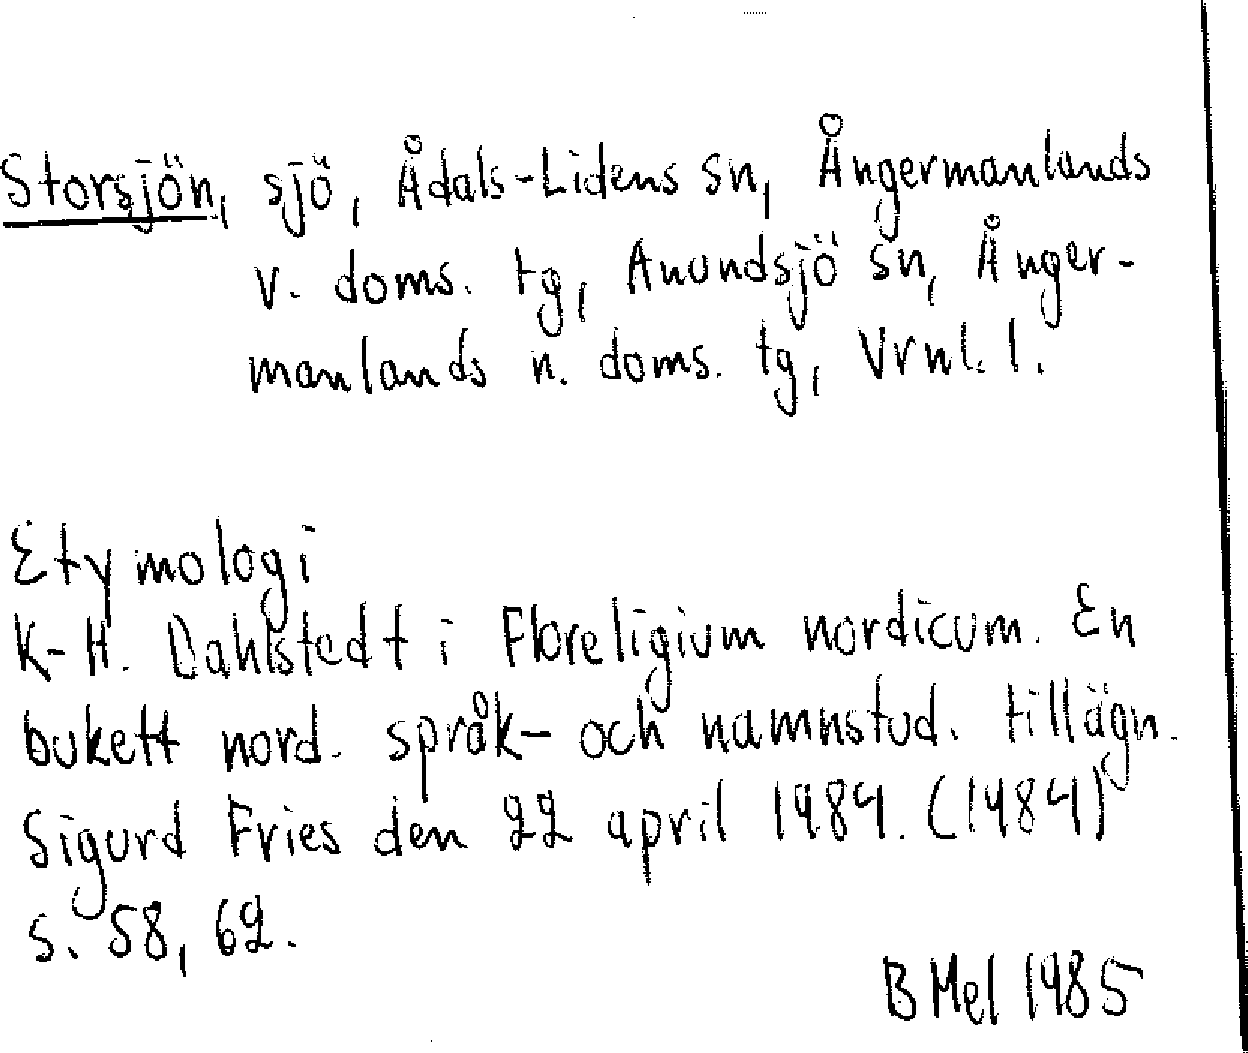 Storsjön, sjö, Ådals-Lidens sn, Ångermanlands
v. doms. tg, Anundsjö sn, Ånger-
manlands n. doms. tg, Vrnl. l.
Etymologi
K-H. Dahlstedt i Floreligium nordicum. En
bukett nord. språk- och namnstud. tillägn.
Sigurd Fries den 22 april 1984. (1984)
s. 58, 62.
B Mel 1985